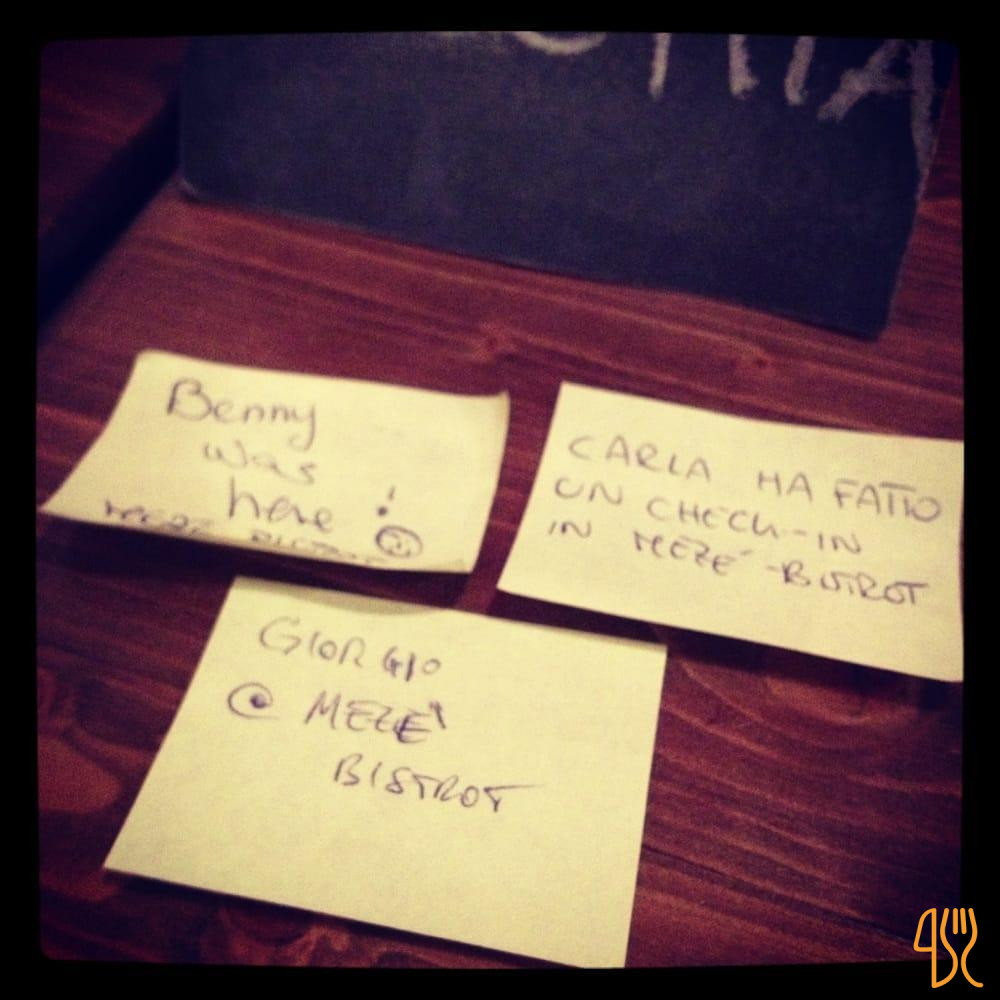 Benny
was
here !
MEZE BISTROT
CARLA HA FATTO
UN CHECK-IN
IN MEZE' -BISTROT
GIORGIO
@ MEZE'
BISTROT